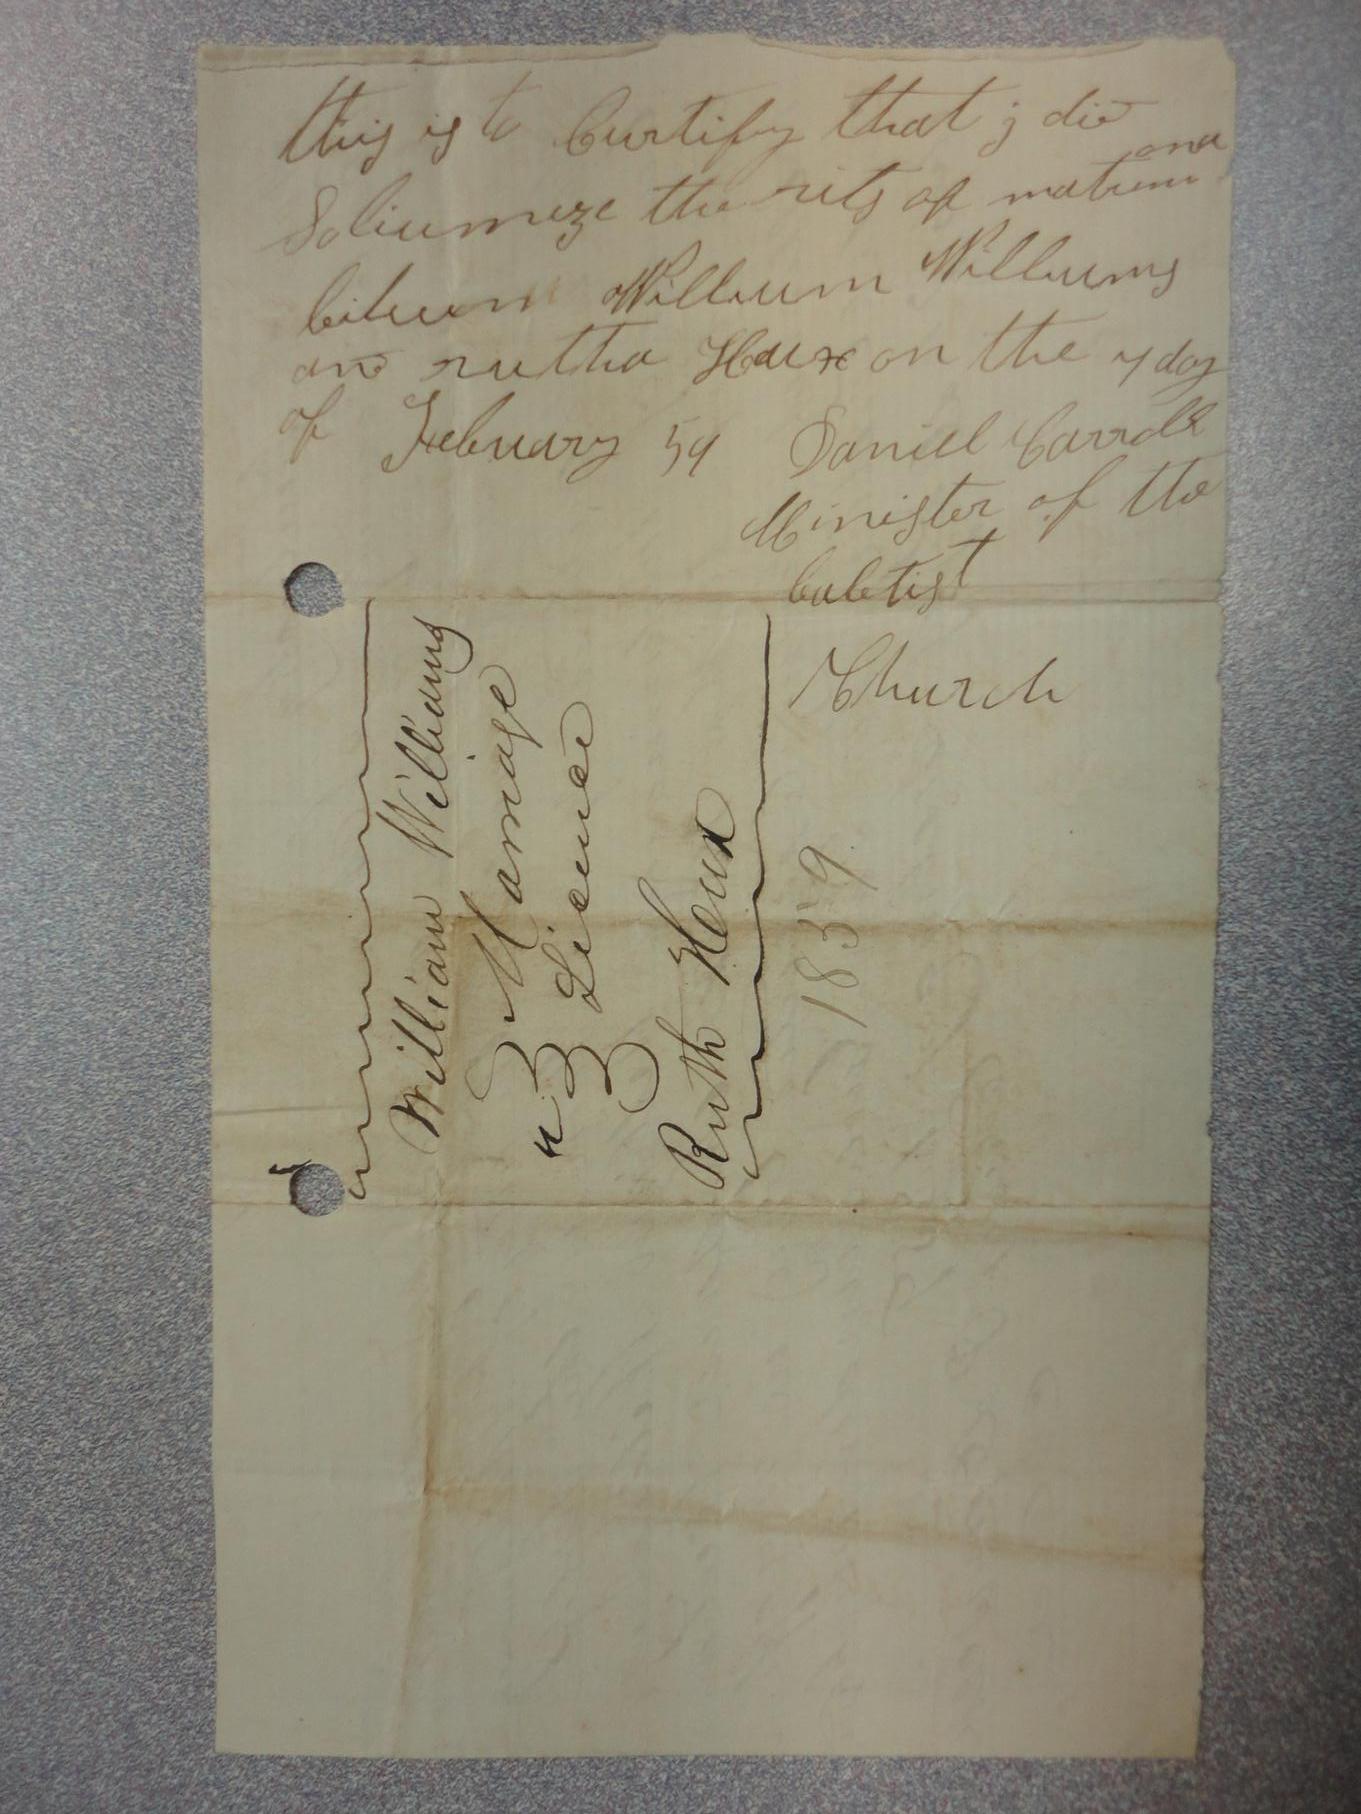 this is to Curtify that j did
Soliumnize the rits of matrimona
bitween William Williams
and rutha Haux on the 7 day
of February 59 Daniel Carroll
Minister of the
babtist
Church
William Williams
Marriage
Licence
Ruth Haux
1859